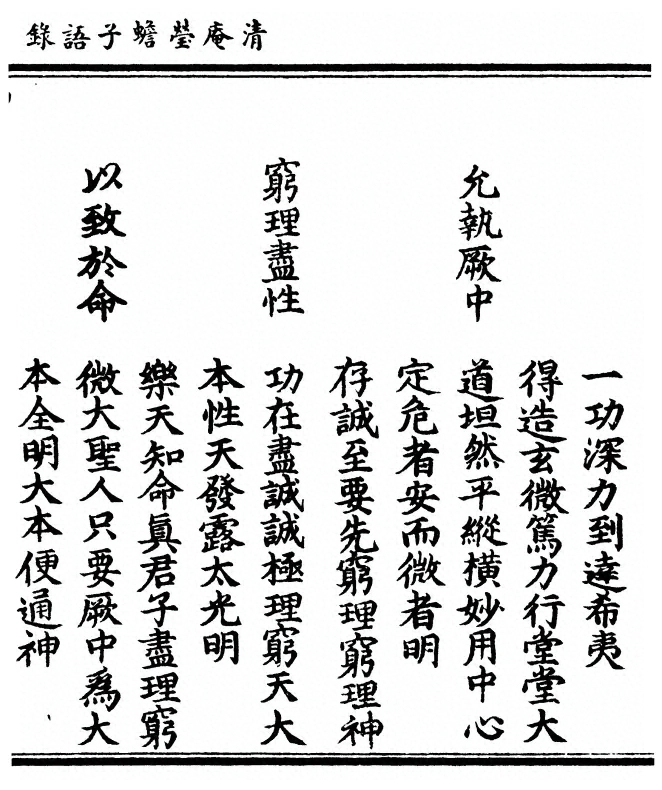 清庵瑩蟾子語錄
一功深力到達希夷
得造玄微篤力行堂堂大
允執厥中
道坦然平縱橫妙用中心
定危者安而微者明
存誠至要先窮理窮理神
窮理盡性
功在盡誠誠極理窮天大
本性天發露太光明
樂天知命眞君子盡理窮
以致於命
微大聖人只要厥中爲大
本全明大本便通神